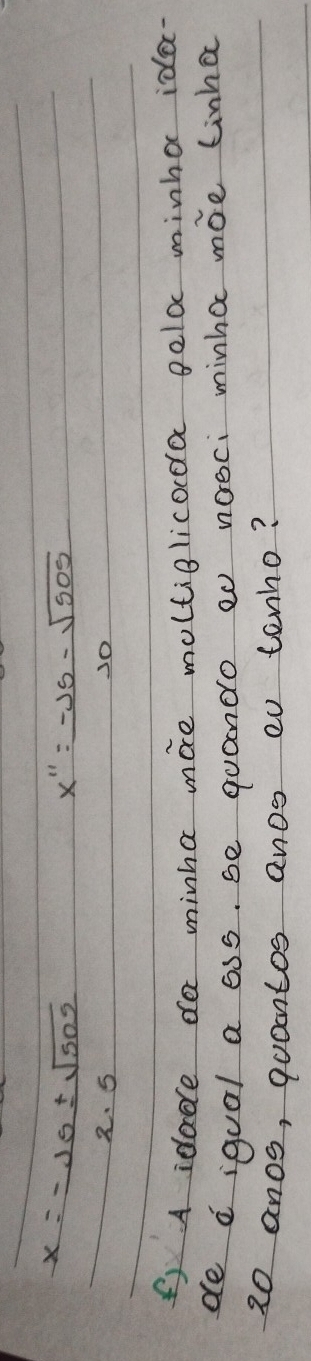 x = -15 ± √505    x'' = -15 - √505
2.5    10
f) A idade da minha mãe multiplicada pela minha ida-
de é igual a 525. se quando eu nasci minha mãe tinha
20 anos, quantos anos eu tenho?